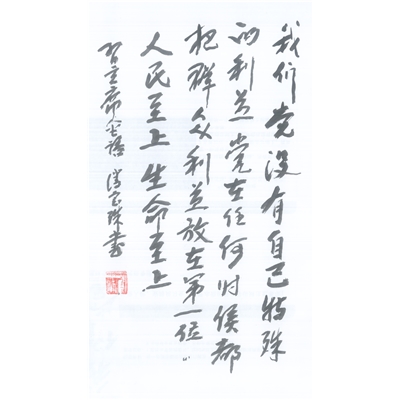 我们党没有自己特殊
的利益 党在任何时候都
把群众利益放在第一位
人民至上 生命至上
习主席金语 书